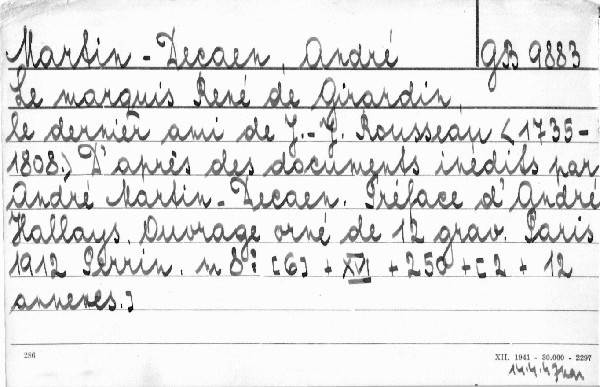 Martin-Decaen, André GB 9883
Le marquis René de Girardin,
le dernier ami de J.-J. Rousseau (1735-
1808.) D'après des documents inédits par
André Martin-Decaen. Préface d'André
Hallays. Ouvrage orné de 12 grav. Paris
1912 Perrin. in 8º [6] + XVI + 250 + [2 + 12
annexes.]
286 XII. 1941 - 30.000 - 2297